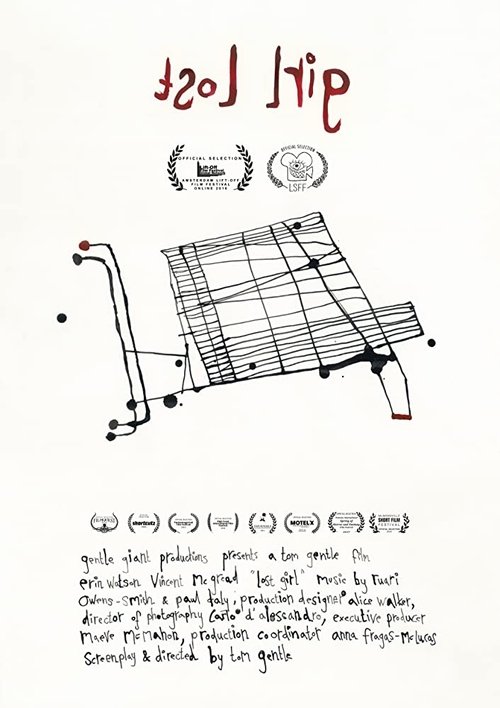 tsol lrig
OFFICIAL SELECTION
LIFT-OFF
AMSTERDAM LIFT-OFF
FILM FESTIVAL
ONLINE 2016
OFFICIAL SELECTION
LSFF
shortcutz
MOTELX
SHORT FILM
FESTIVAL
gentle giant productions presents a tom gentle film
erin watson Vincent McGread "lost girl" Music by ruari
Owens-Smith & paul daly, production designer alice walker,
director of photography Carlo d'alessandro, executive producer
Maeve McMahon, production coordinator anna fragas-McLucas
Screenplay & directed by tom gentle